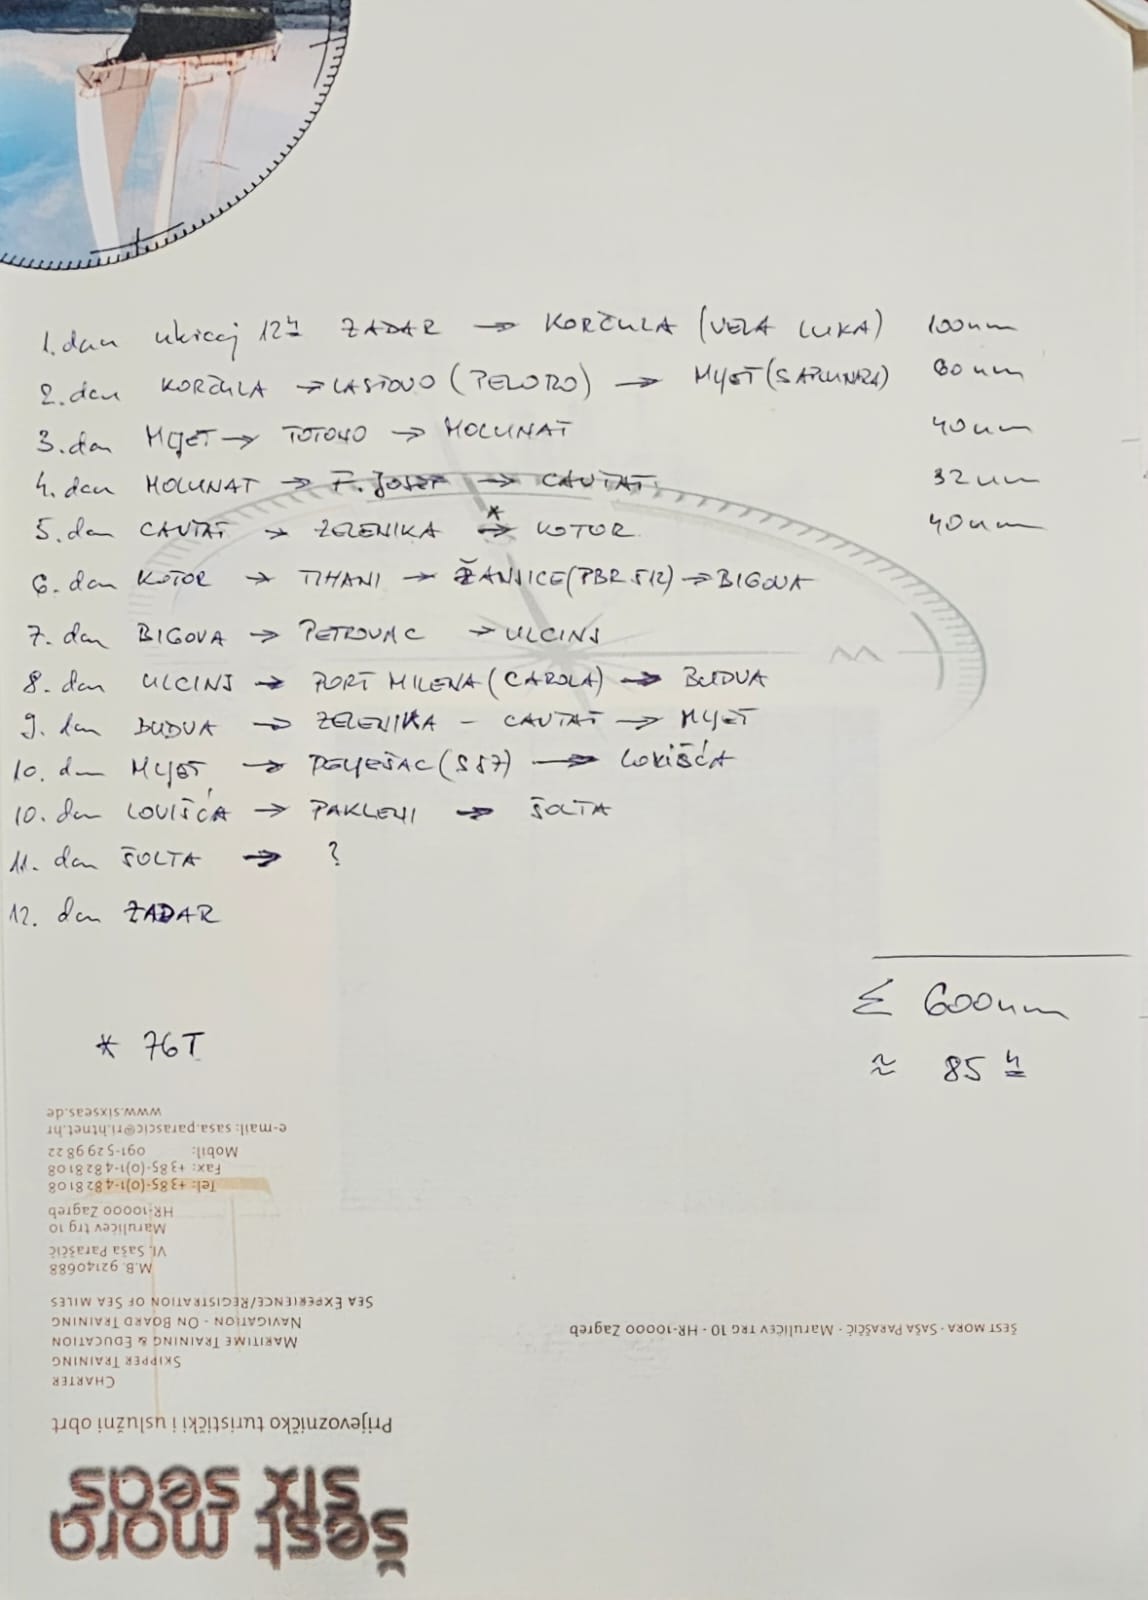 1. dan ukrcaj 12h ZADAR → KORČULA (VELA LUKA) 100nm
2. dan KORČULA → LASTOVO (PELORO) → MLJET (SAPLUNARA) 80nm
3. dan MLJET → TOTONO → MOLUNAT 40nm
4. dan MOLUNAT → F. Josef → CAVTAT 32nm
5. dan CAVTAT → ZELENIKA *→ KOTOR 40nm
6. dan KOTOR → TIHANI → ŽANJICE (PBR 512) → BIGOVA
7. dan BIGOVA → PETROVAC → ULCINJ
8. dan ULCINJ → PORT MILENA (CAROLA) → BUDVA
9. dan BUDVA → ZELENIKA - CAVTAT → MLJET
10. dan MLJET → PELJEŠAC (S57) → LOVIŠĆA
10. dan LOVIŠĆA → PAKLENI → ŠOLTA
11. dan ŠOLTA → ?
12. dan ZADAR
Σ 600nm
* 76T
≈ 85h
šest mora
six seas
Prijevozničko turistički i uslužni obrt
CHARTER
SKIPPER TRAINING
MARITIME TRAINING & EDUCATION
NAVIGATION - ON BOARD TRAINING
SEA EXPERIENCE/REGISTRATION OF SEA MILES
M.B. 92140688
Vl. Saša Paraščić
Marulićev trg 10
HR-10000 Zagreb
Tel: +385-(0)1-4828108
Fax: +385-(0)1-4828108
Mobil: 091-5299822
e-mail: sasa.parascic@ri.htnet.hr
www.sixseas.de
ŠEST MORA · SAŠA PARAŠČIĆ · MARULIĆEV TRG 10 · HR-10000 Zagreb